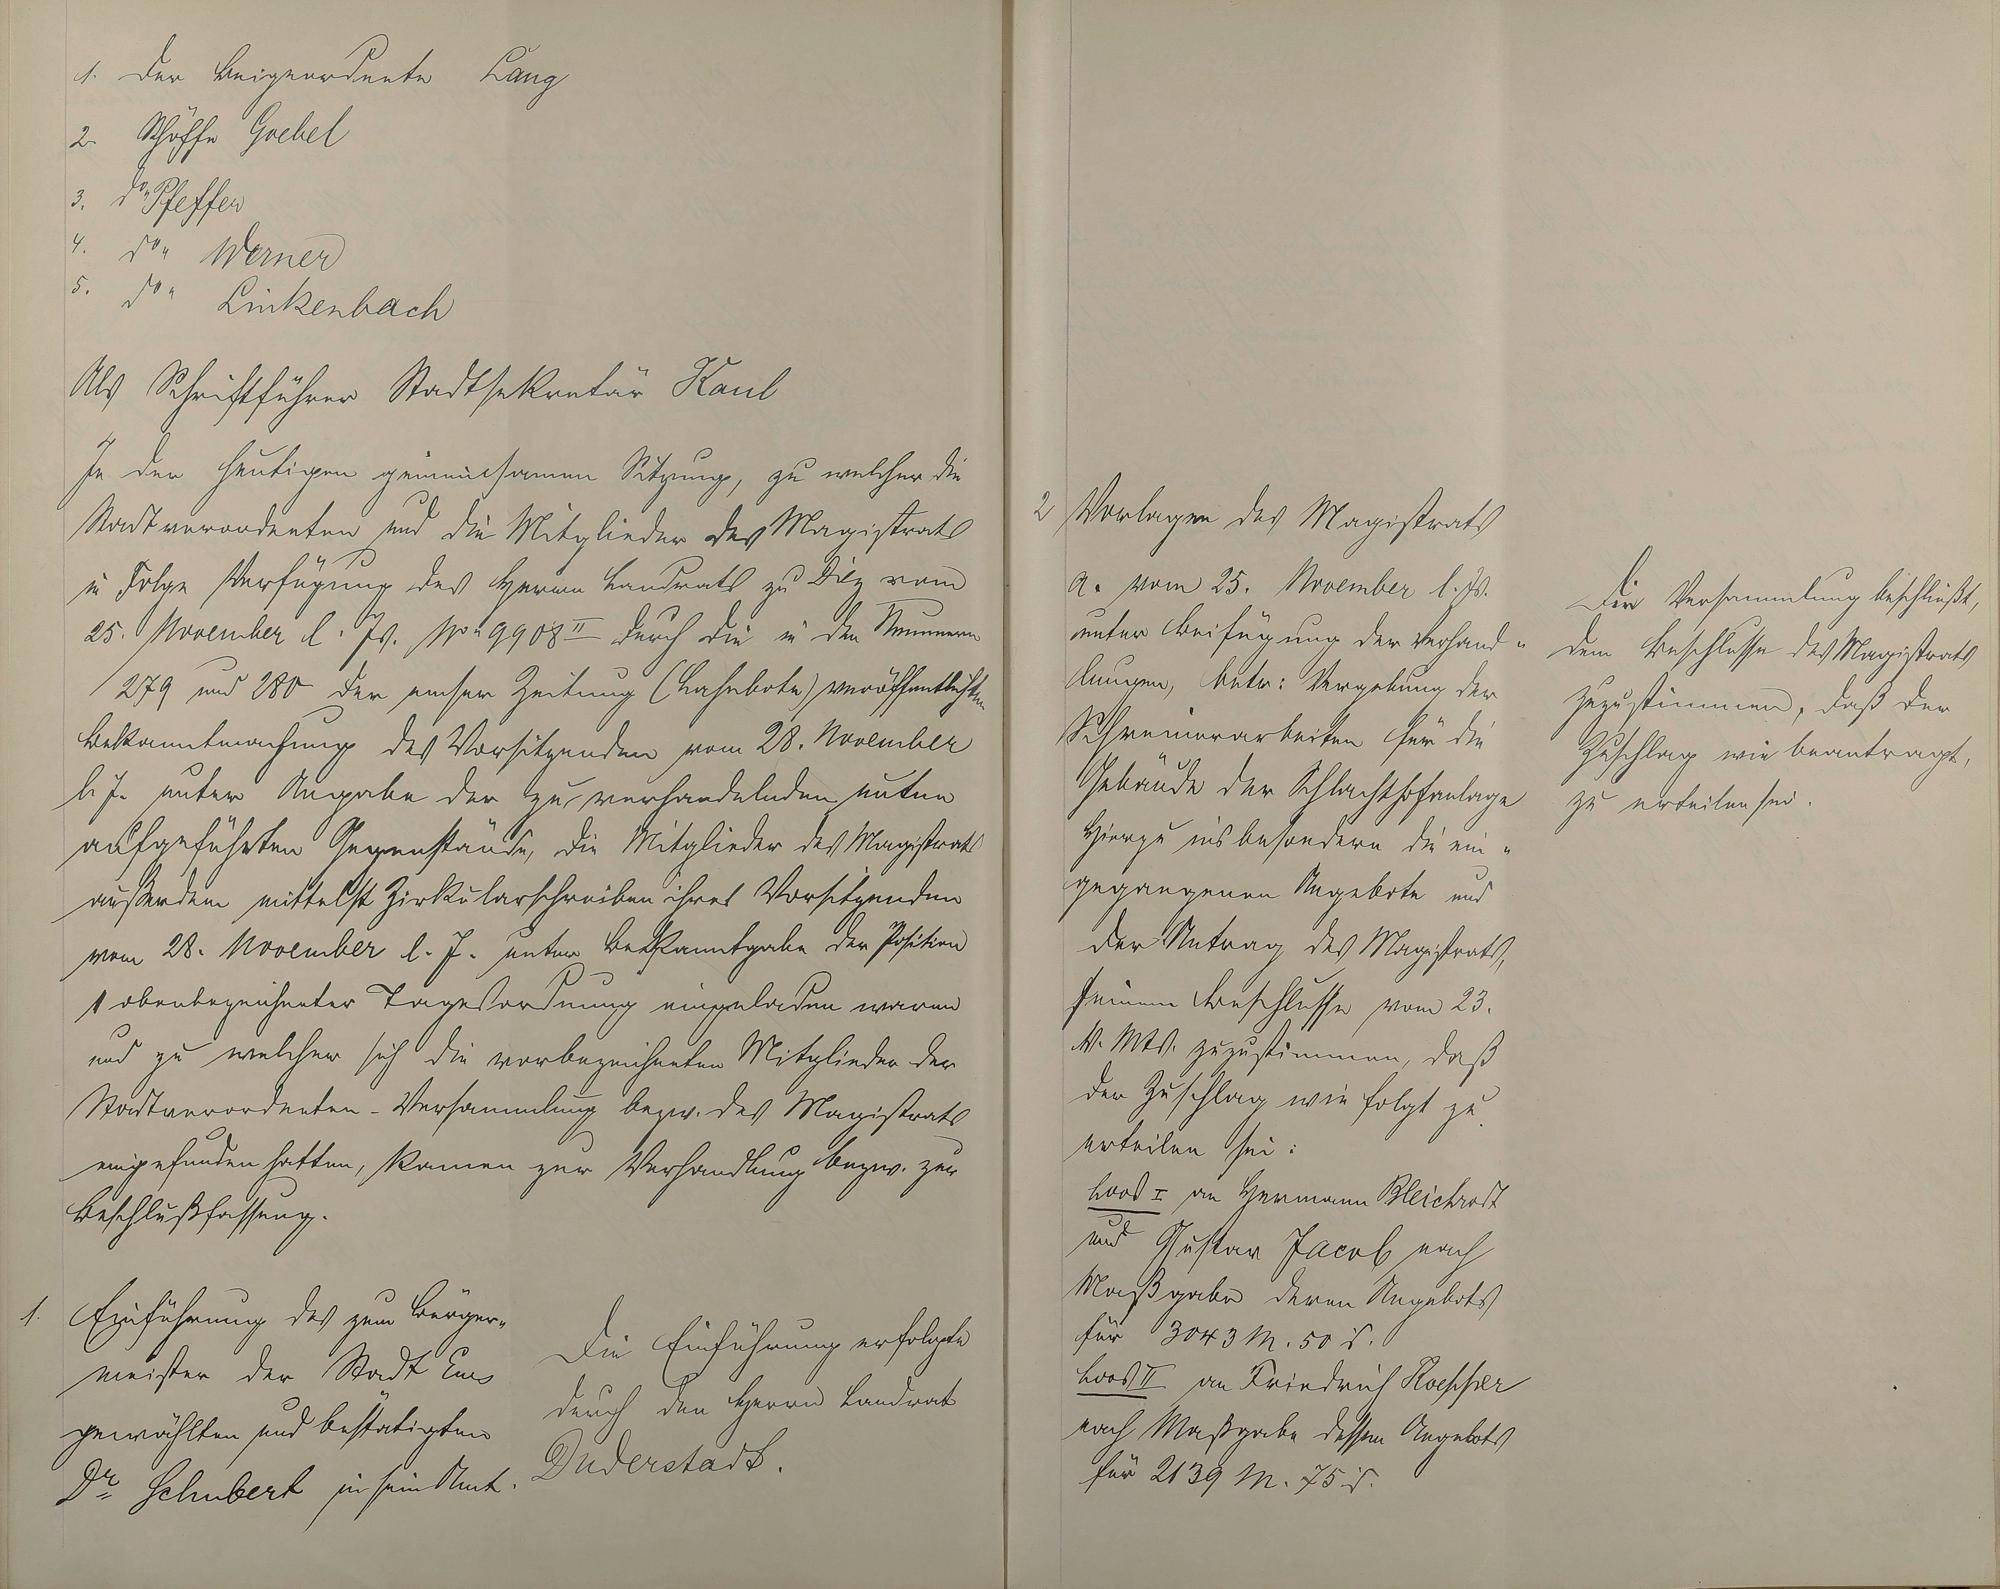 1. Der Beigeordnete Lang
2. Schöffe Goebel
3. do. Pfeffer
4. do. Werner
5. do. Linkenbach
Als Schriftführer Stadtsekretär Kaul
In der heutigen gemeinsamen Sitzung, zu welcher die
Stadtverordneten und die Mitglieder des Magistrats
in Folge Verfügung des Herrn Landrats zu Diez vom
25. November l. Js. No. 9908 II durch die in den Nummern
279 und 280 der Emser Zeitung (Lahnbote) veröffentlichten
Bekanntmachung des Vorsitzenden vom 28. November
l. J. unter Angabe der zu verhandelnden unten
aufgeführten Gegenstände, die Mitglieder des Magistrats
außerdem mittelst Zirkularschreiben ihres Vorsitzenden
vom 28. November l. J. unter Bekanntgabe der Position
1 obenbezeichneter Tagesordnung eingeladen waren
und zu welcher sich die vorbezeichneten Mitglieder der
Stadtverordneten-Versammlung bezw. des Magistrats
eingefunden hatten, kamen zur Verhandlung bezw. zur
Beschlußfassung.
1. Einführung des zum Bürger-
meister der Stadt Ems
gewählten und bestätigten
Dr. Schubert in sein Amt.
Die Einführung erfolgte
durch den Herrn Landrat
Duderstadt.
2 Vorlagen des Magistrats
a. vom 25. November l. Js.
unter Beifügung der Verhand-
lungen, betr: Vergebung der
Schreinerarbeiten für die
Gebäude der Schlachthofanlage
Hierzu insbesondere die ein-
gegangenen Angebote und
der Antrag des Magistrats,
seinem Beschlusse vom 23.
v. Mts. zuzustimmen, daß
der Zuschlag wie folgt zu
erteilen sei:
Loos I an Hermann Bleichrodt
und Gustav Jacob nach
Maßgabe deren Angebots
für 3043 M. 50 d.
Loos II an Friedrich
nach Maßgabe dessen Angebots
für 2139 M. 75 d.
Die Versammlung beschließt,
dem Beschlusse des Magistrats
zuzustimmen, daß der
Zuschlag wie beantragt,
zu erteilen sei.